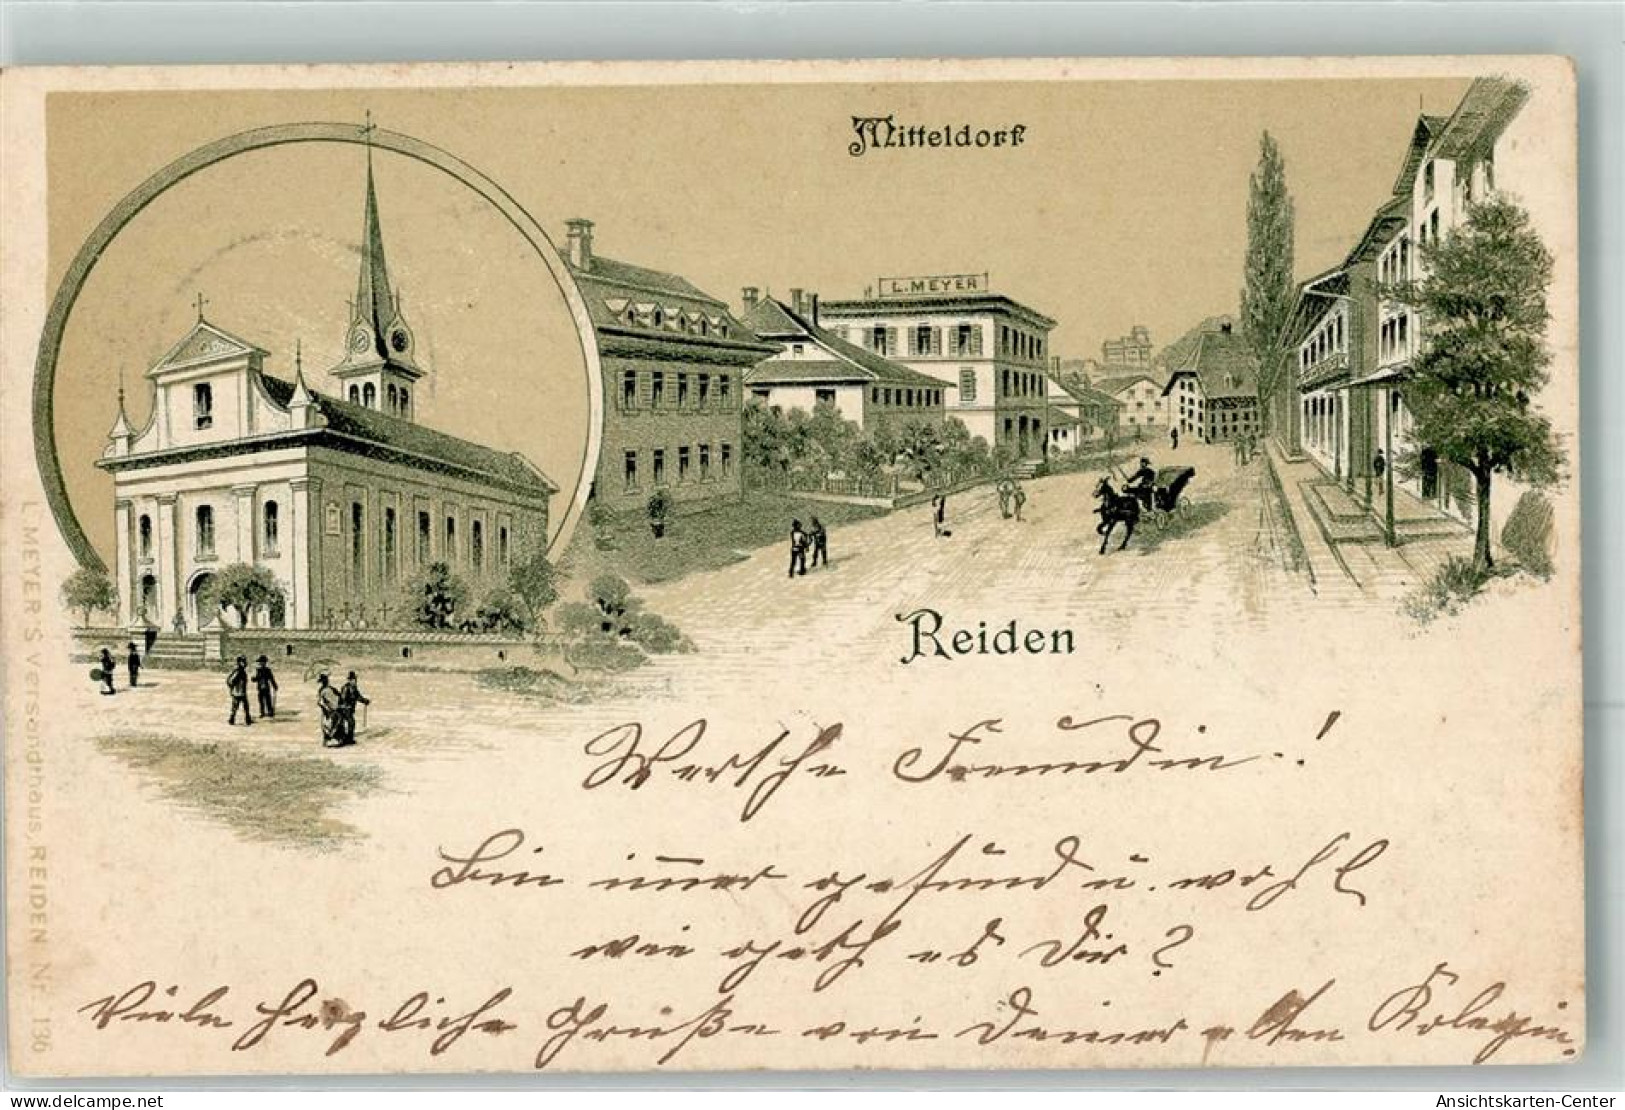 Mitteldorf
L. MEYER
Reiden
Werthe Freundin!
Bin immer gesund u. wohl
wie geht es Dir?
Viele herzliche Grüße von Deiner alten Kolegin.
L. MEYER'S Versandhaus, REIDEN Nr. 136
www.delcampe.net
Ansichtskarten-Center